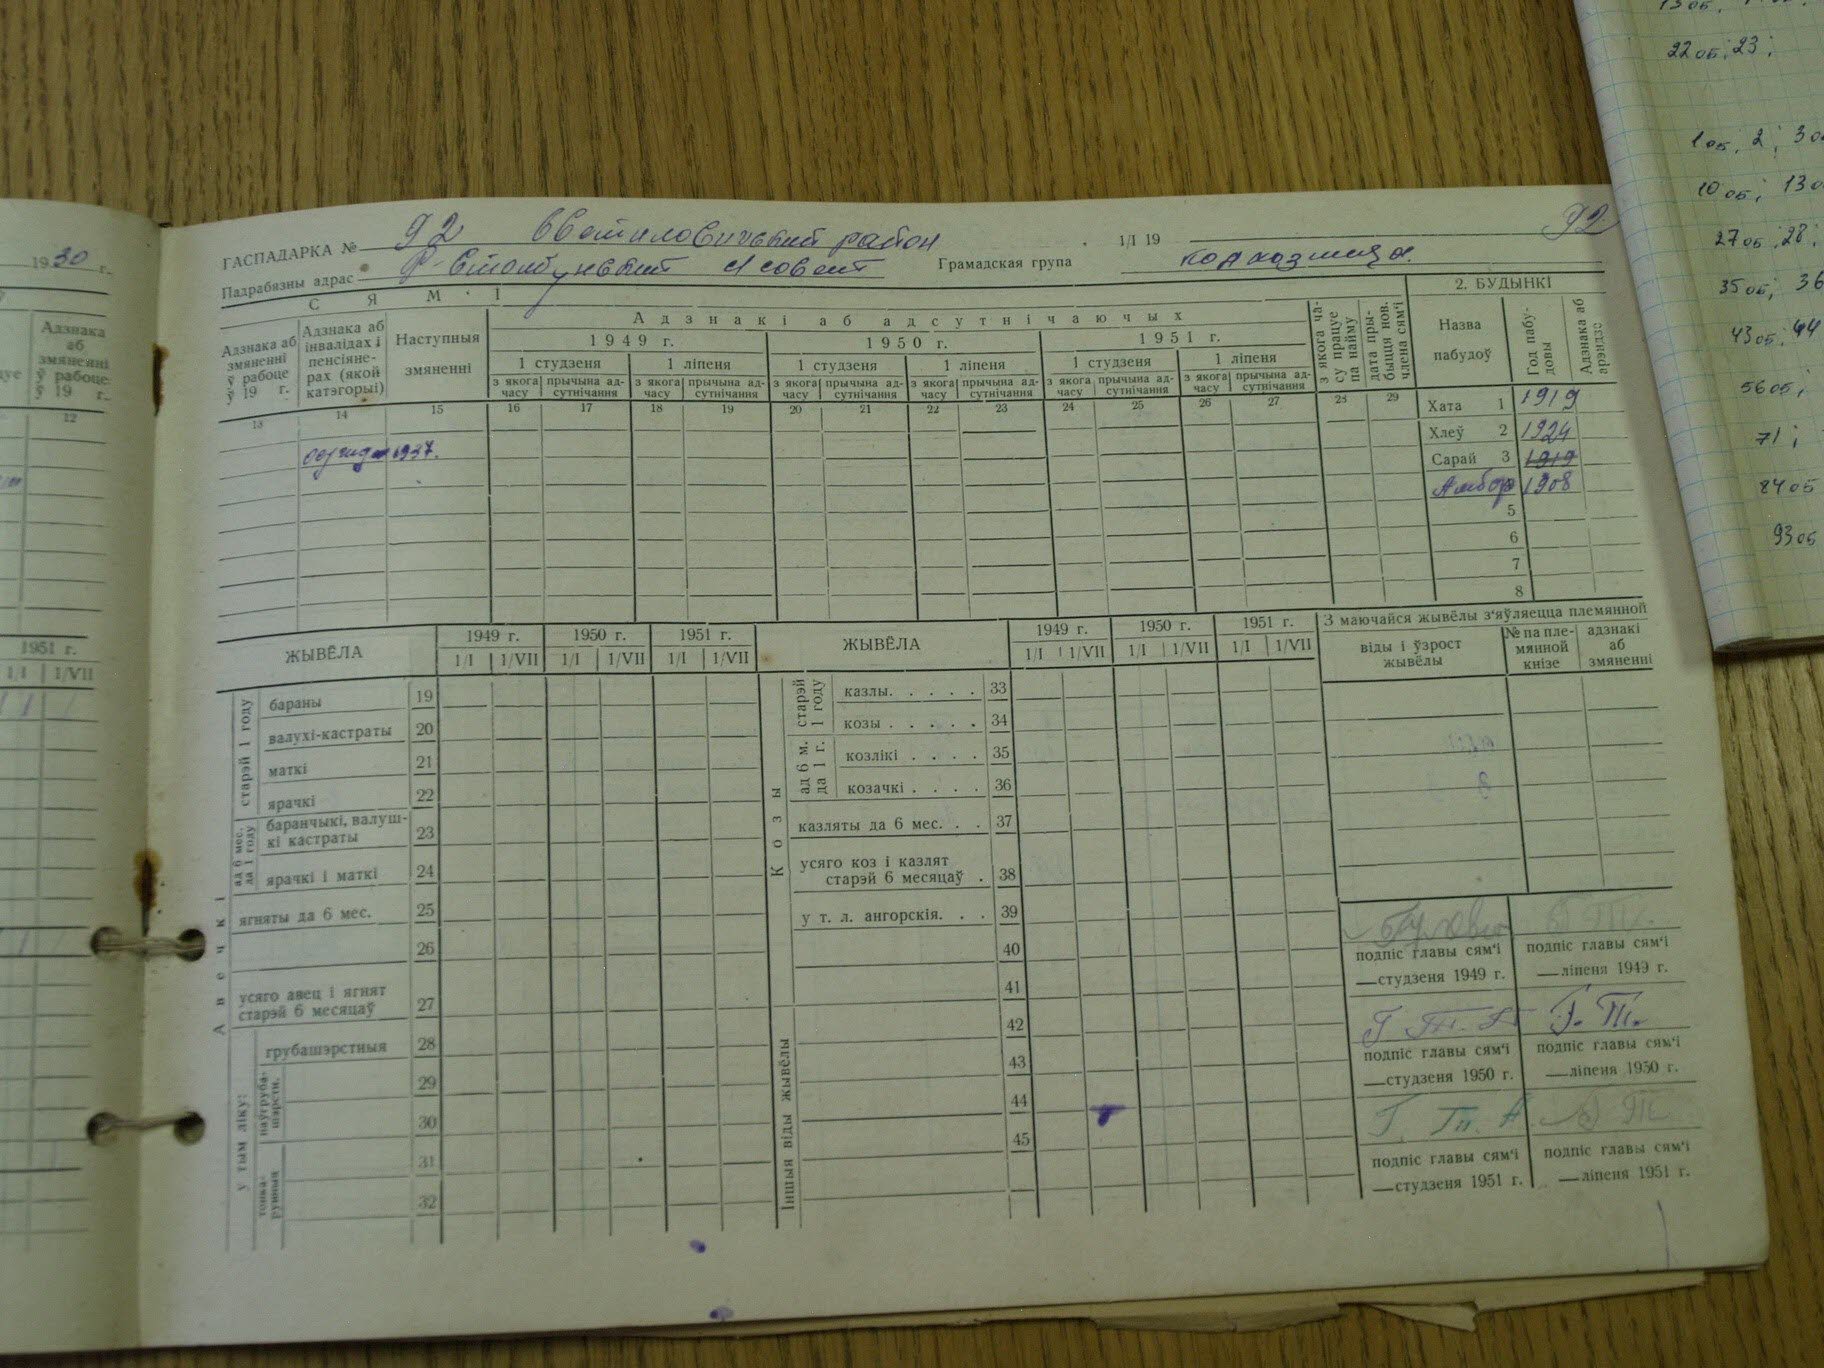 ГАСПАДАРКА № 92 район 1/I 19 92
Падрабязны адрас Грамадская група
С Я М ' І
2. БУДЫНКІ
Адзнака аб змяненні ў рабоце ў 19 г.
Адзнака аб інвалідах і пенсіяне-рах (якой катэгорыі)
Наступныя змяненні
Адзнакі аб адсутнічаючых
1949 г. 1950 г. 1951 г.
1 студзеня 1 ліпеня 1 студзеня 1 ліпеня 1 студзеня 1 ліпеня
з якога часу прычына ад-сутнічання з якога часу прычына ад-сутнічання з якога часу прычына ад-сутнічання з якога часу прычына ад-сутнічання з якога часу прычына ад-сутнічання з якога часу прычына ад-сутнічання
з якога ча-су працуе па найму
дата пры-быцця нов. члена сям'і
Назва пабудоў
Год пабу-довы
Адзнака аб арэндзе
13 14 15 16 17 18 19 20 21 22 23 24 25 26 27 28 29
Хата 1 1919
Хлеў 2 1924
Сарай 3 1919
Амбар 1908
1937.
5
6
7
8
ЖЫВЁЛА
1949 г. 1950 г. 1951 г.
1/I 1/VII 1/I 1/VII 1/I 1/VII
Авечкі
старэй 1 году
бараны 19
валухі-кастраты 20
маткі 21
ярачкі 22
ад 6 мес. да 1 году
баранчыкі, валуш-
кі кастраты 23
ярачкі і маткі 24
ягняты да 6 мес. 25
26
усяго авец і ягнят
старэй 6 месяцаў 27
у тым ліку:
грубашэрстныя 28
паўгруба-шэрсти.
29
30
тонка-рунныя
31
32
ЖЫВЁЛА
1949 г. 1950 г. 1951 г.
1/I 1/VII 1/I 1/VII 1/I 1/VII
Козы
старэй 1 году
казлы. . . . . 33
козы . . . . . 34
ад 6 м. да 1 г.
козлікі . . . . 35
козачкі . . . . 36
казляты да 6 мес. . . 37
усяго коз і казлят
старэй 6 месяцаў . 38
у т. л. ангорскія. . . 39
40
41
Іншыя віды жывёлы
42
43
44
45
З маючайся жывёлы з'яўляецца племянной
віды і ўзрост жывёлы
№ па пле-мянной кнізе
адзнакі аб змяненні
подпіс главы сям'і
—студзеня 1949 г.
подпіс главы сям'і
—ліпеня 1949 г.
подпіс главы сям'і
—студзеня 1950 г.
Г. Т.
подпіс главы сям'і
—ліпеня 1950 г.
подпіс главы сям'і
—студзеня 1951 г.
подпіс главы сям'і
—ліпеня 1951 г.
1930 г.
Адзнака аб змяненні ў рабоце ў 19 г.
12
1951 г.
1/I 1/VII
22об; 23;
1об; 2; 3об
10об; 13о
27об; 28;
35об; 36
43об; 44
56об;
71;
84об
93об